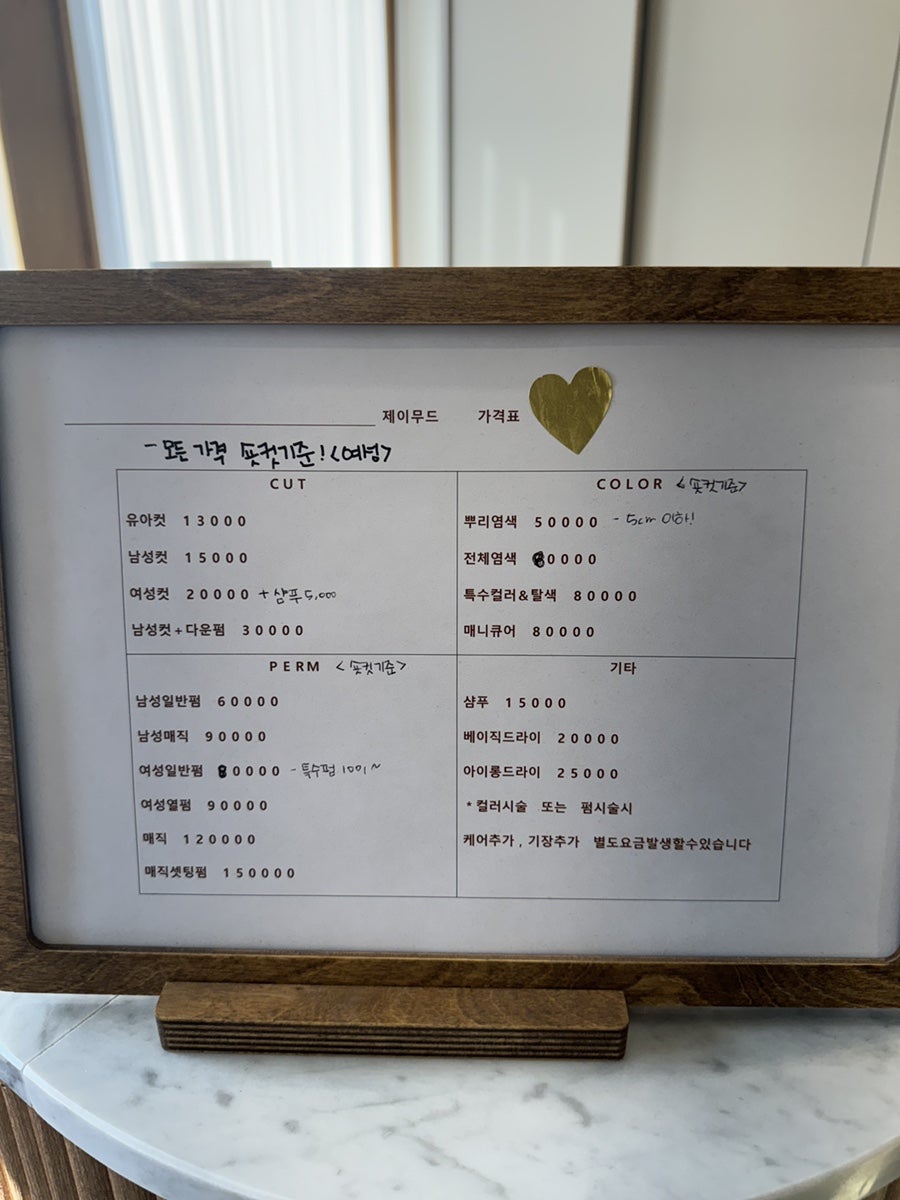 제이무드 가격표
- 모든 가격 숏컷기준! <여성>
CUT
유아컷 13000
남성컷 15000
여성컷 20000 + 샴푸 5,000
남성컷+다운펌 30000
COLOR <숏컷기준>
뿌리염색 50000 - 5cm 이하!
전체염색 80000
특수컬러&탈색 80000
매니큐어 80000
PERM <숏컷기준>
남성일반펌 60000
남성매직 90000
여성일반펌 80000 - 특수펌 10만~
여성열펌 90000
매직 120000
매직셋팅펌 150000
기타
샴푸 15000
베이직드라이 20000
아이롱드라이 25000
*컬러시술 또는 펌시술시
케어추가, 기장추가 별도요금발생할수있습니다